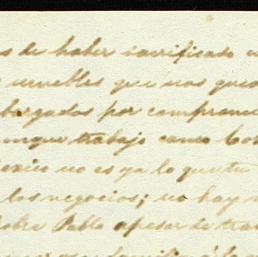 s de haber sacrificado
muebles que nos que
bargados por comprom
unque trabajo como
exico no es ya lo que tu
los negocios; no hay
obre Pablo apesar de tra